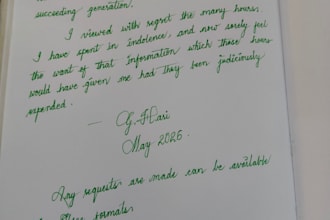 succeeding generation.
I viewed with regret the many hours,
I have spent in indolence, and now sorely feel
the want of that Information which those hours
would have given me had they been judiciously
expended.
May 2026.
Any requests, are made can be available
formats.